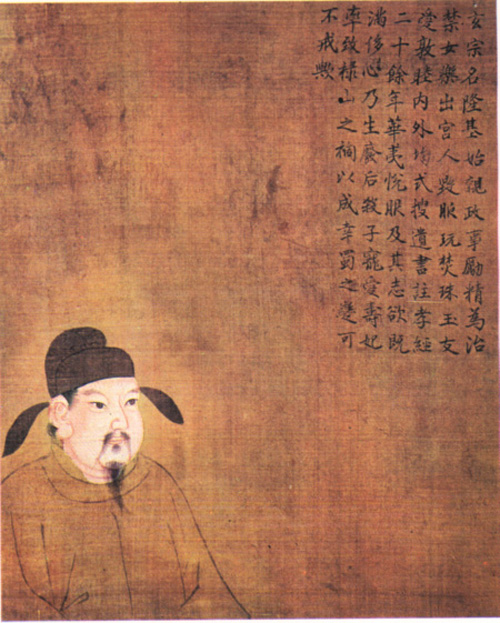 玄宗名隆基始政事勵精為治
禁女樂出宮人毀服玩焚珠玉友
愛敦睦内外均式搜遺書註孝經
二十餘年華夷悅服及其志欲既
滿侈心乃生廢后殺子寵愛壽妃
率致祿山之禍以成幸蜀之遷可
不戒歟